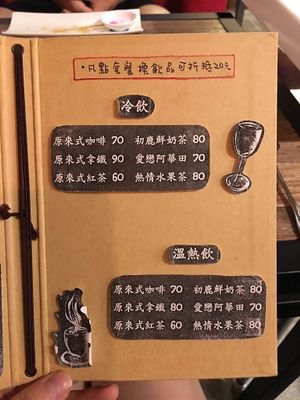 •凡點套餐換飲品可折抵20元
冷飲
原來式咖啡 70 初鹿鮮奶茶 80
原來式拿鐵 90 愛戀阿華田 70
原來式紅茶 60 熱情水果茶 80
溫熱飲
原來式咖啡 70 初鹿鮮奶茶 80
原來式拿鐵 80 愛戀阿華田 80
原來式紅茶 60 熱情水果茶 80